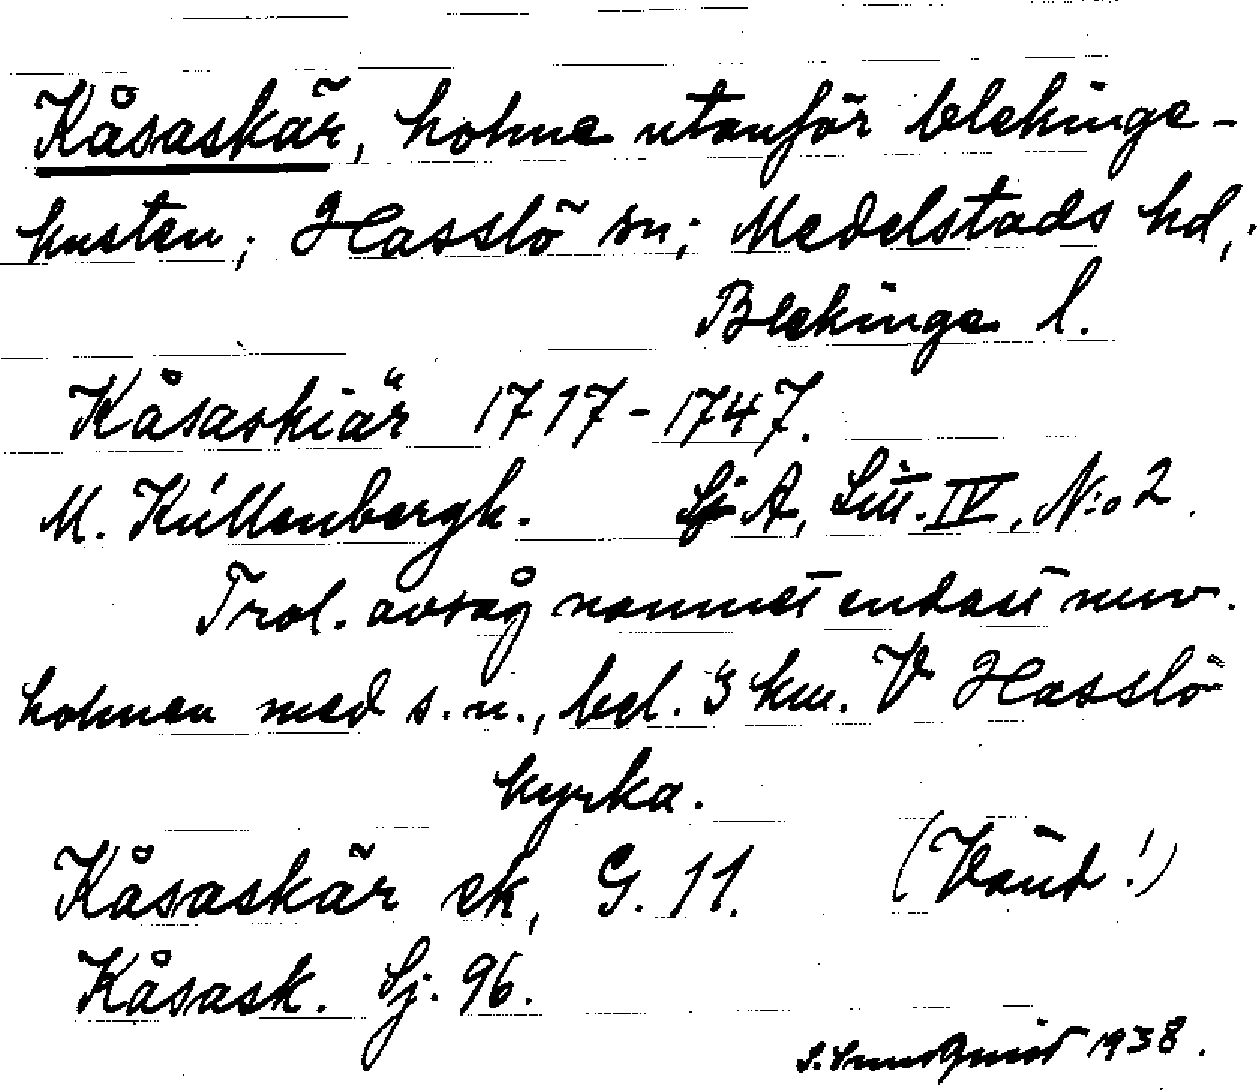 Kåsaskär, holme utanför blekinge-
kusten; Hasslö sn; Medelstads hd,;
Blekinge l.
Kåsaskiär 1717-1747.
M. Küllenbergh. Sj A, Litt. IV, N:o 2.
Trol. avsåg namnet endast nuv.
holmen med s. n., bel. 3 km. V Hasslö
kyrka.
Kåsaskär ek, G. 11. (Vänd!)
Kåsask. Sj. 96.
S. Sundquist 1938.